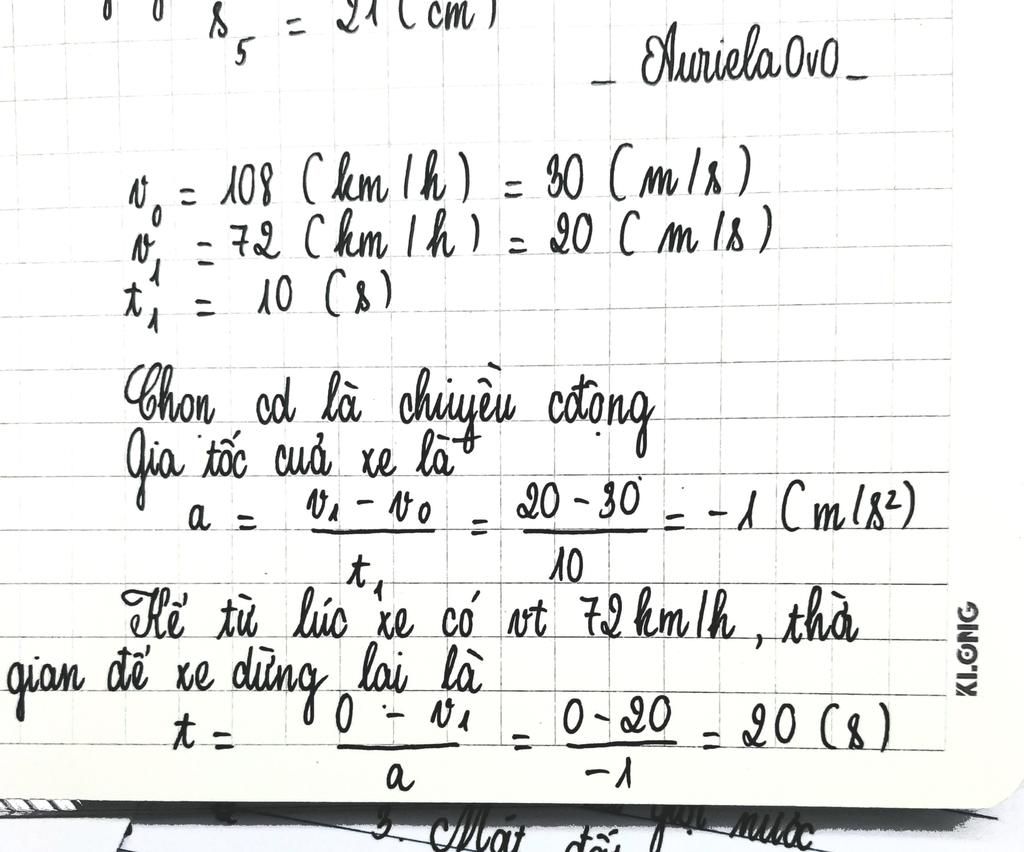 s₅ = 21 (cm)
_ Auriela OvO _
v₀ = 108 (km/h) = 30 (m/s)
v₁ = 72 (km/h) = 20 (m/s)
t₁ = 10 (s)
Chọn cđ là chiều cđộng
Gia tốc của xe là
a = (v₁ - v₀)/t₁ = (20 - 30)/10 = -1 (m/s²)
Kể từ lúc xe có vt 72 km/h, thời
gian để xe dừng lại là
t = (0 - v₁)/a = (0 - 20)/(-1) = 20 (s)
KLONG
3. Mặt đối
nước